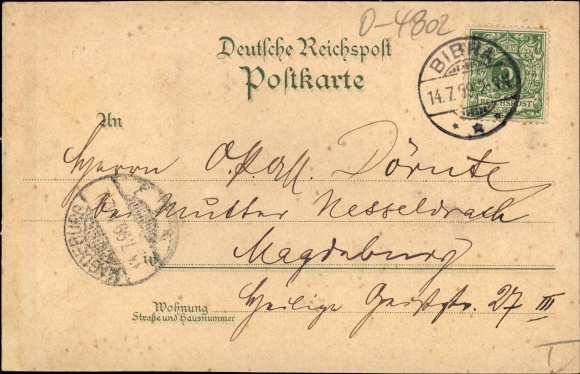 D-4802
Deutsche Reichspost
Postkarte
BIBRA
14.7.99
REICHSPOST
An
Herrn O. Dörnte
bei Mutter Nesseldrath
MAGDEBURG
in Magdeburg
Wohnung Heilige Geiststr. 27 III
Straße und Hausnummer